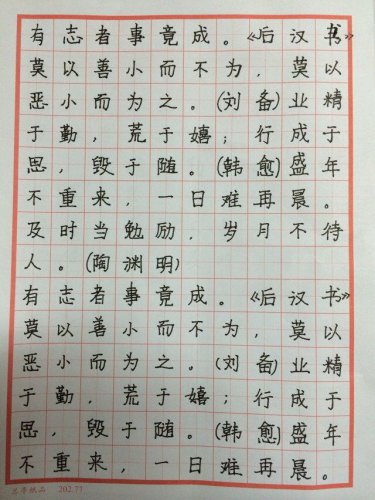 有志者事竟成。《后汉书》
莫以善小而不为，莫以
恶小而为之。(刘备)业精
于勤，荒于嬉；行成于
思，毁于随。(韩愈)盛年
不重来，一日难再晨。
及时当勉励，岁月不待
人。(陶渊明)
有志者事竟成。《后汉书》
莫以善小而不为，莫以
恶小而为之。(刘备)业精
于勤，荒于嬉；行成于
思，毁于随。(韩愈)盛年
不重来，一日难再晨。